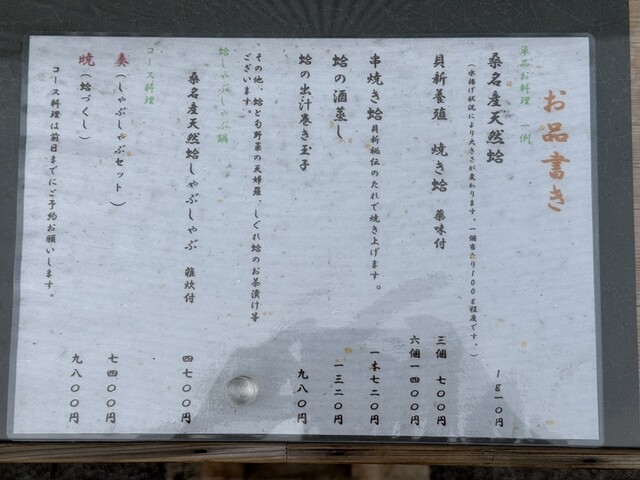 お品書き
単品お料理 一例
桑名産天然蛤 1g一〇円
(水揚げ状況により大きさが変わります。一個当たり100g程度です。)
貝新養殖 焼き蛤 薬味付 三個 七〇〇円
六個一四〇〇円
串焼き蛤 貝新秘伝のたれで焼き上げます。 一本七二〇円
蛤の酒蒸し 一三二〇円
蛤の出汁巻き玉子 九八〇円
その他、蛤と旬野菜の天婦羅、しぐれ蛤のお茶漬け等
ございます。
蛤しゃぶしゃぶ鍋
桑名産天然蛤しゃぶしゃぶ 雑炊付 四七〇〇円
コース料理
奏(しゃぶしゃぶセット) 七四〇〇円
暁(蛤づくし) 九八〇〇円
コース料理は前日までにご予約お願いします。